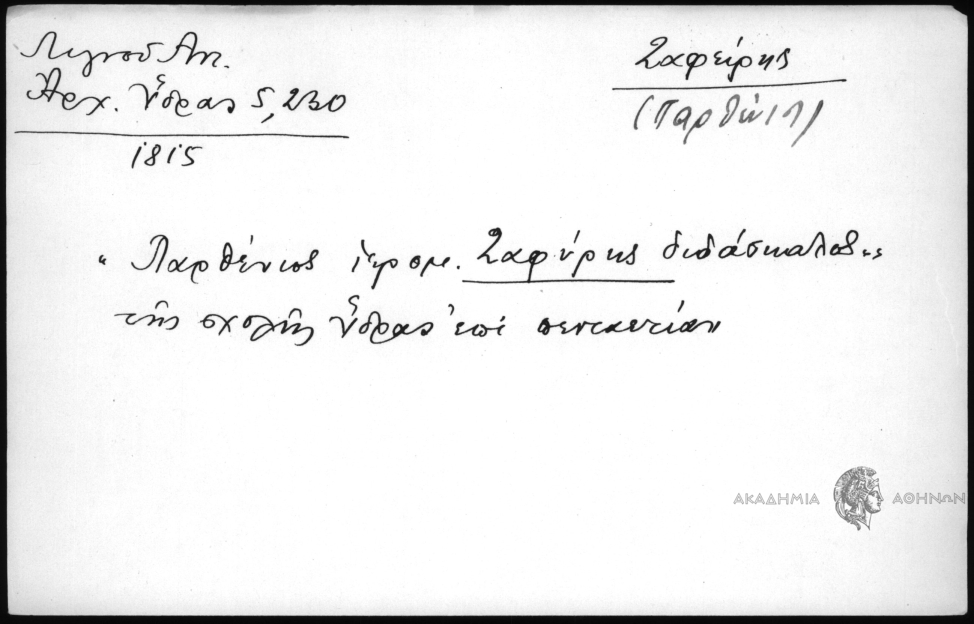 Λιγνοῦ Ἀντ.
Ἀρχ. Ὕδρας 5, 230
1815
Σαφείρης
(Παρθένιος)
“Παρθένιος ἱερομ. Σαφύρης διδάσκαλος„
τῆς σχολῆς Ὕδρας ἐπὶ πενταετίαν
ΑΚΑΔΗΜΙΑ ΑΘΗΝΩΝ